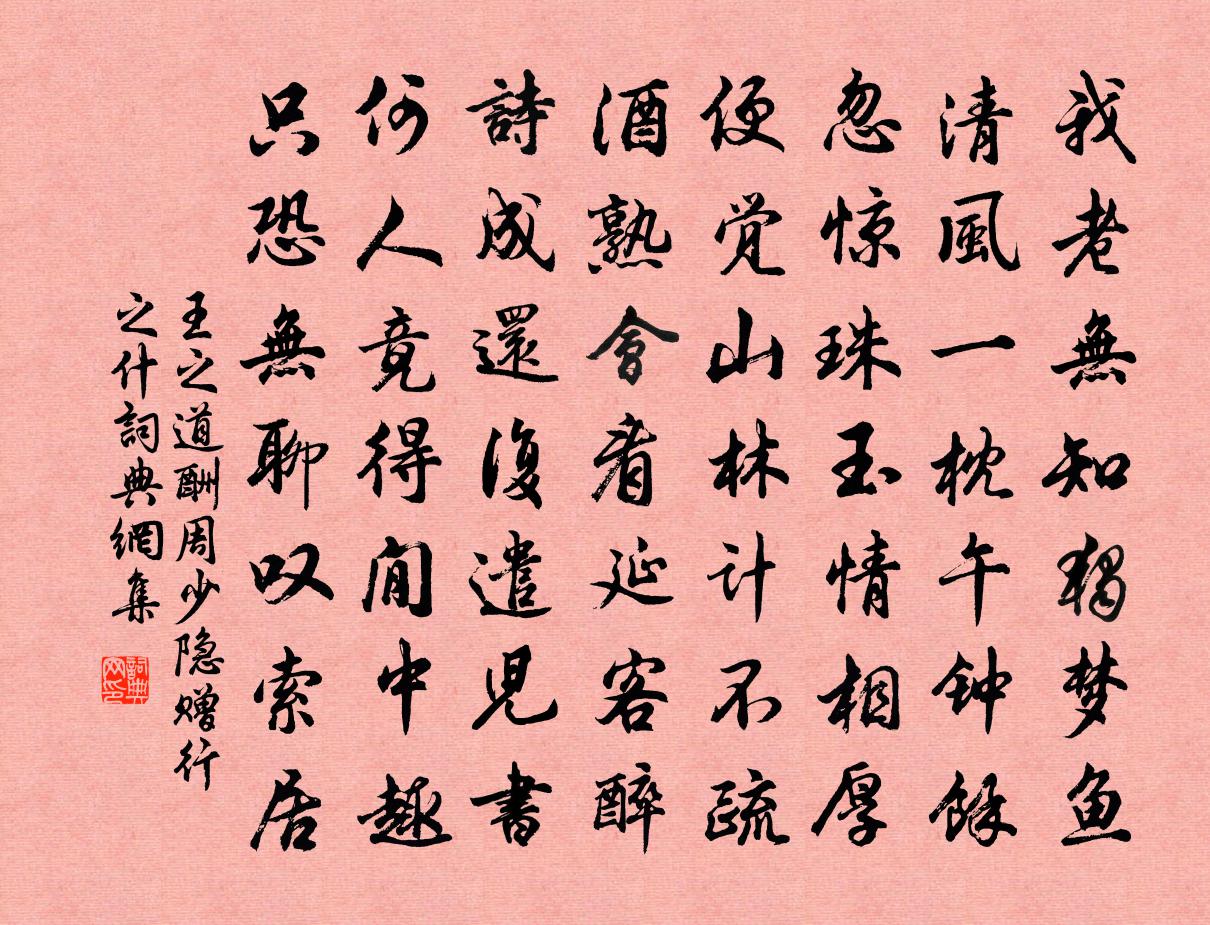 我老無知獨梦鱼
清風一枕午钟餘
忽惊珠玉情相厚
便觉山林计不疏
酒熟會看延客醉
詩成還復遣児書
何人竟得閒中趣
只恐無聊叹索居
王之道酬周少隐赠行
之什詞典網集
詞典
网印